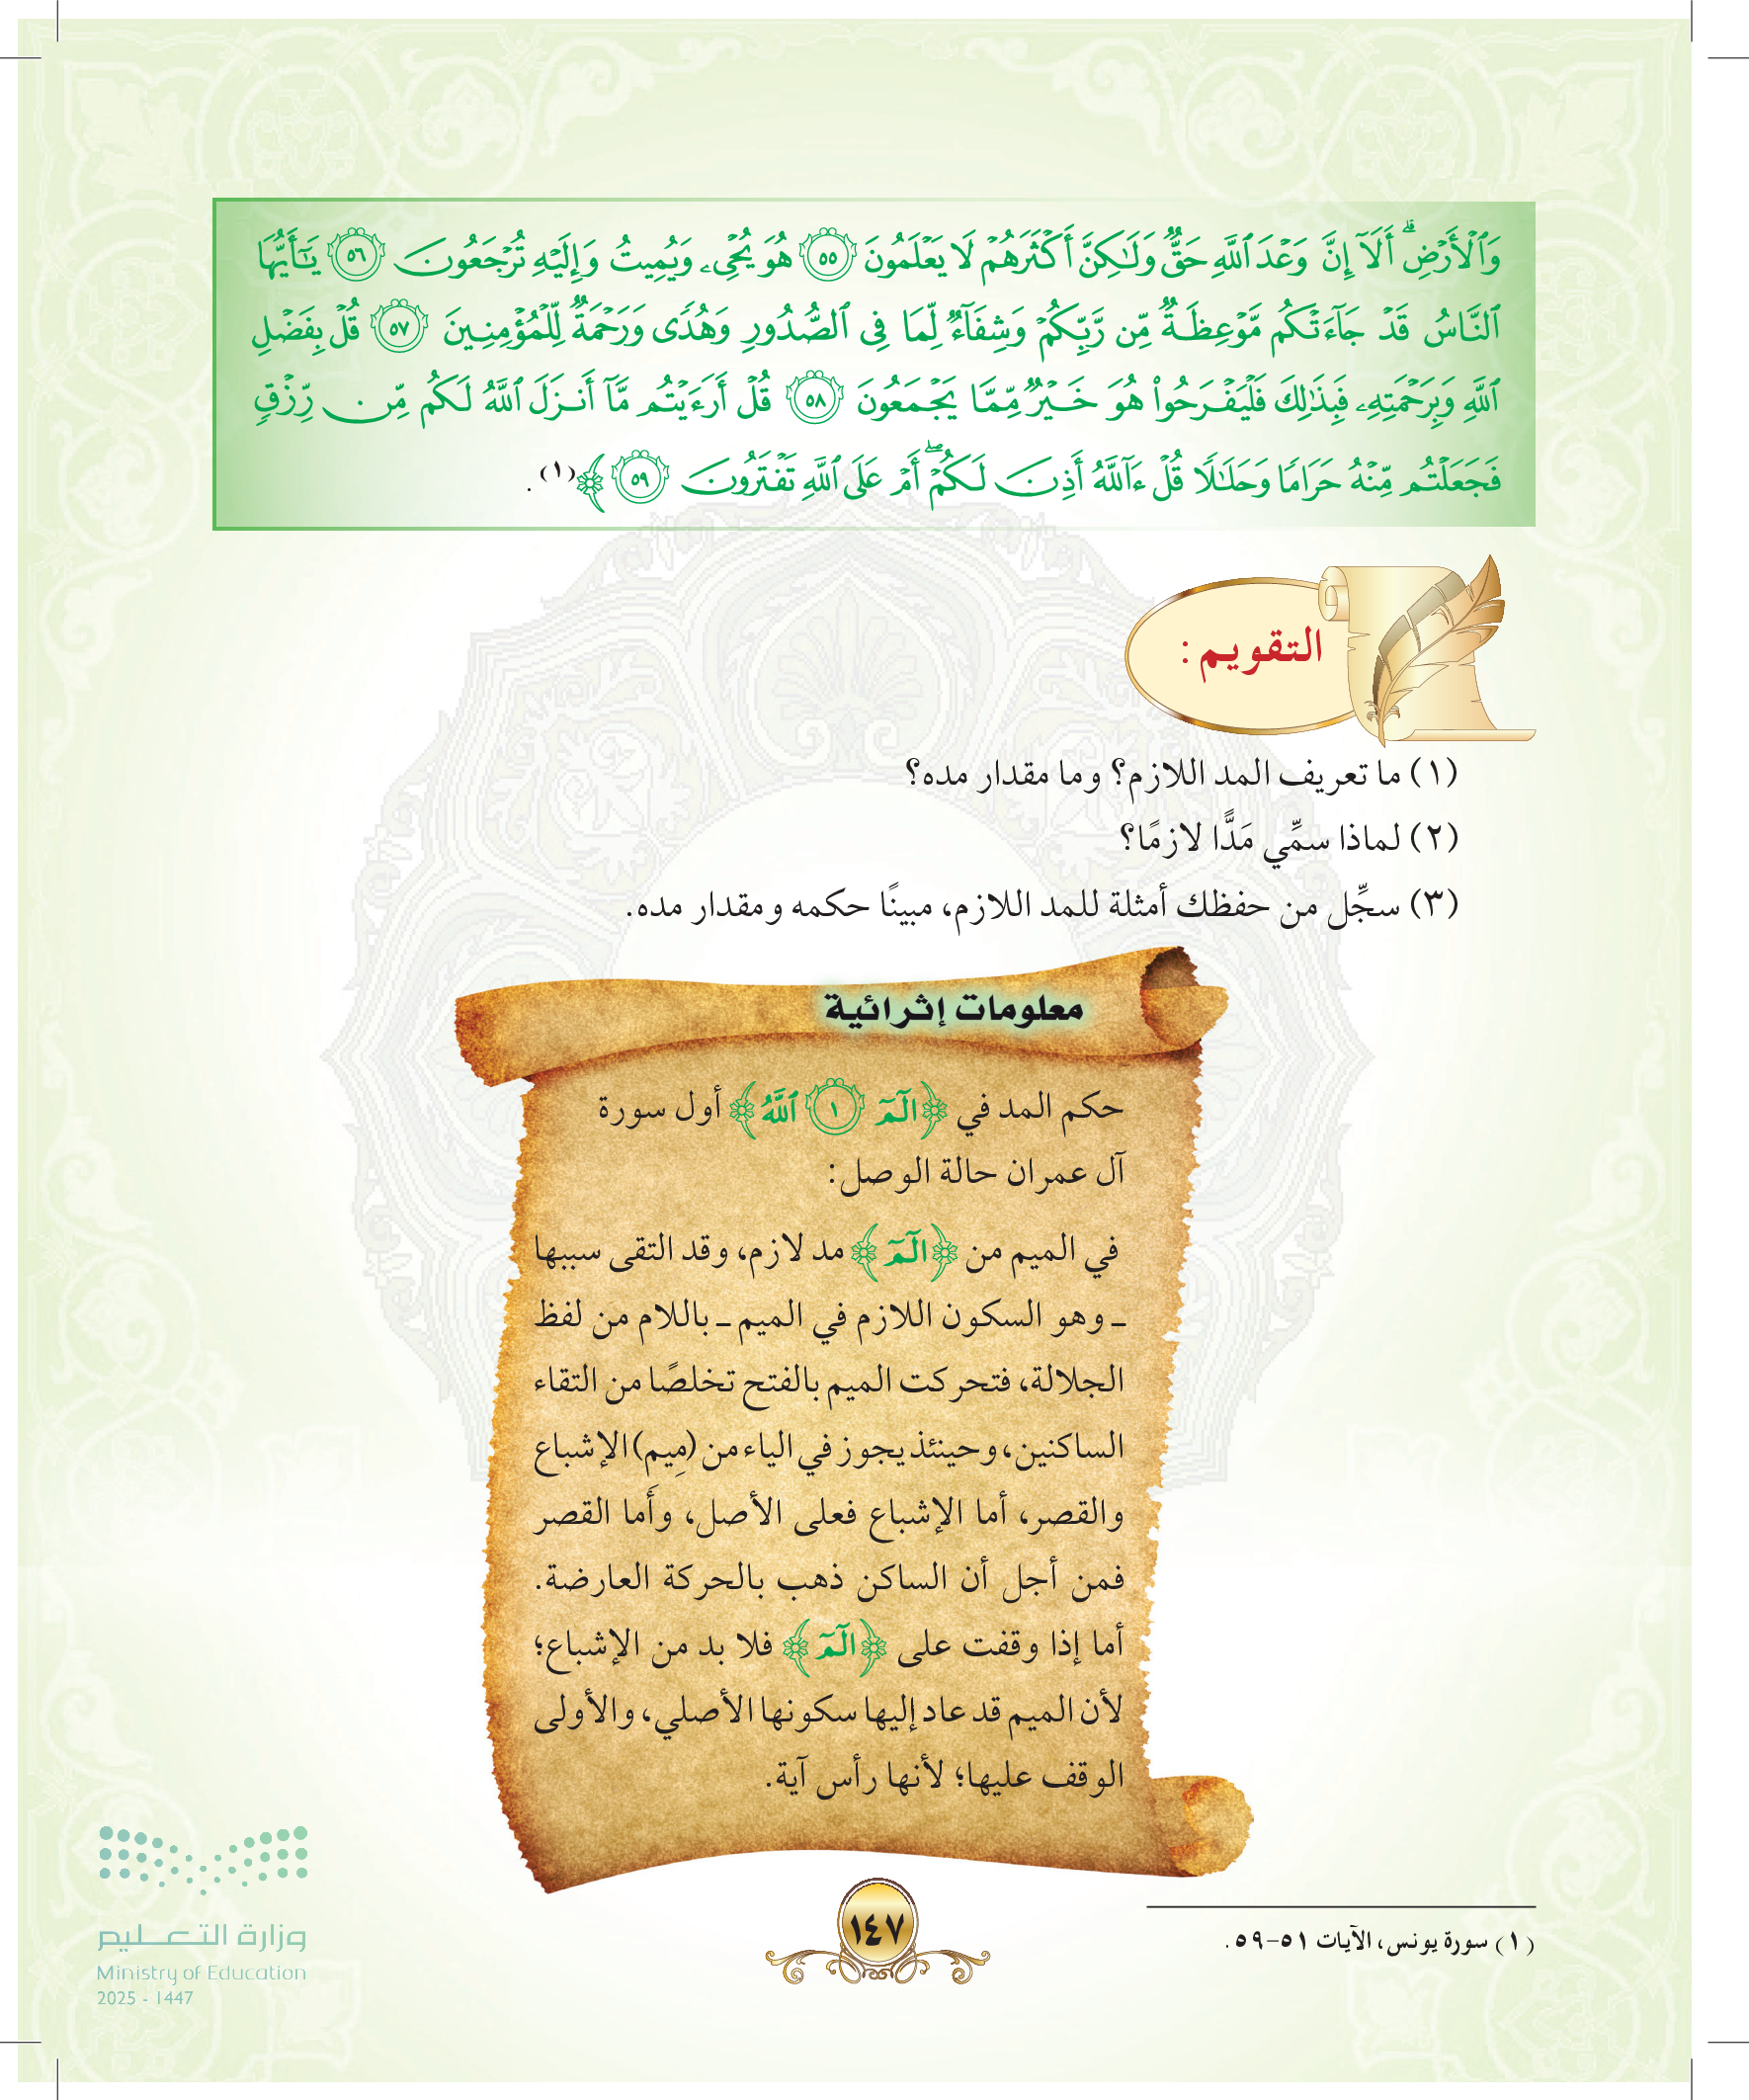 وَٱلْأَرْضِۗ أَلَآ إِنَّ وَعْدَ ٱللَّهِ حَقٌّ وَلَـٰكِنَّ أَكْثَرَهُمْ لَا يَعْلَمُونَ ٥٥ هُوَ يُحْىِۦ وَيُمِيتُ وَإِلَيْهِ تُرْجَعُونَ ٥٦ يَـٰٓأَيُّهَا
ٱلنَّاسُ قَدْ جَآءَتْكُم مَّوْعِظَةٌ مِّن رَّبِّكُمْ وَشِفَآءٌ لِّمَا فِى ٱلصُّدُورِ وَهُدًى وَرَحْمَةٌ لِّلْمُؤْمِنِينَ ٥٧ قُلْ بِفَضْلِ
ٱللَّهِ وَبِرَحْمَتِهِۦ فَبِذَٰلِكَ فَلْيَفْرَحُوا۟ هُوَ خَيْرٌ مِّمَّا يَجْمَعُونَ ٥٨ قُلْ أَرَءَيْتُم مَّآ أَنزَلَ ٱللَّهُ لَكُم مِّن رِّزْقٍ
فَجَعَلْتُم مِّنْهُ حَرَامًا وَحَلَـٰلًا قُلْ ءَآللَّهُ أَذِنَ لَكُمْۖ أَمْ عَلَى ٱللَّهِ تَفْتَرُونَ ٥٩ ﴾(١).
التقويم :
(١) ما تعريف المد اللازم؟ وما مقدار مده؟
(٢) لماذا سمِّي مَدًّا لازمًا؟
(٣) سجِّل من حفظك أمثلة للمد اللازم، مبينًا حكمه ومقدار مده.
معلومات إثرائية
حكم المد في ﴿الٓمٓ ١ ٱللَّهُ﴾ أول سورة
آل عمران حالة الوصل:
في الميم من ﴿الٓمٓ﴾ مد لازم، وقد التقى سببها
ـ وهو السكون اللازم في الميم ـ باللام من لفظ
الجلالة، فتحركت الميم بالفتح تخلصًا من التقاء
الساكنين، وحينئذ يجوز في الياء من (مِيمَ) الإشباع
والقصر، أما الإشباع فعلى الأصل، وأما القصر
فمن أجل أن الساكن ذهب بالحركة العارضة.
أما إذا وقفت على ﴿الٓمٓ﴾ فلا بد من الإشباع؛
لأن الميم قد عاد إليها سكونها الأصلي، والأولى
الوقف عليها؛ لأنها رأس آية.
(١) سورة يونس، الآيات ٥١-٥٩.
١٤٧
وزارة التعليم
Ministry of Education
2025 - 1447